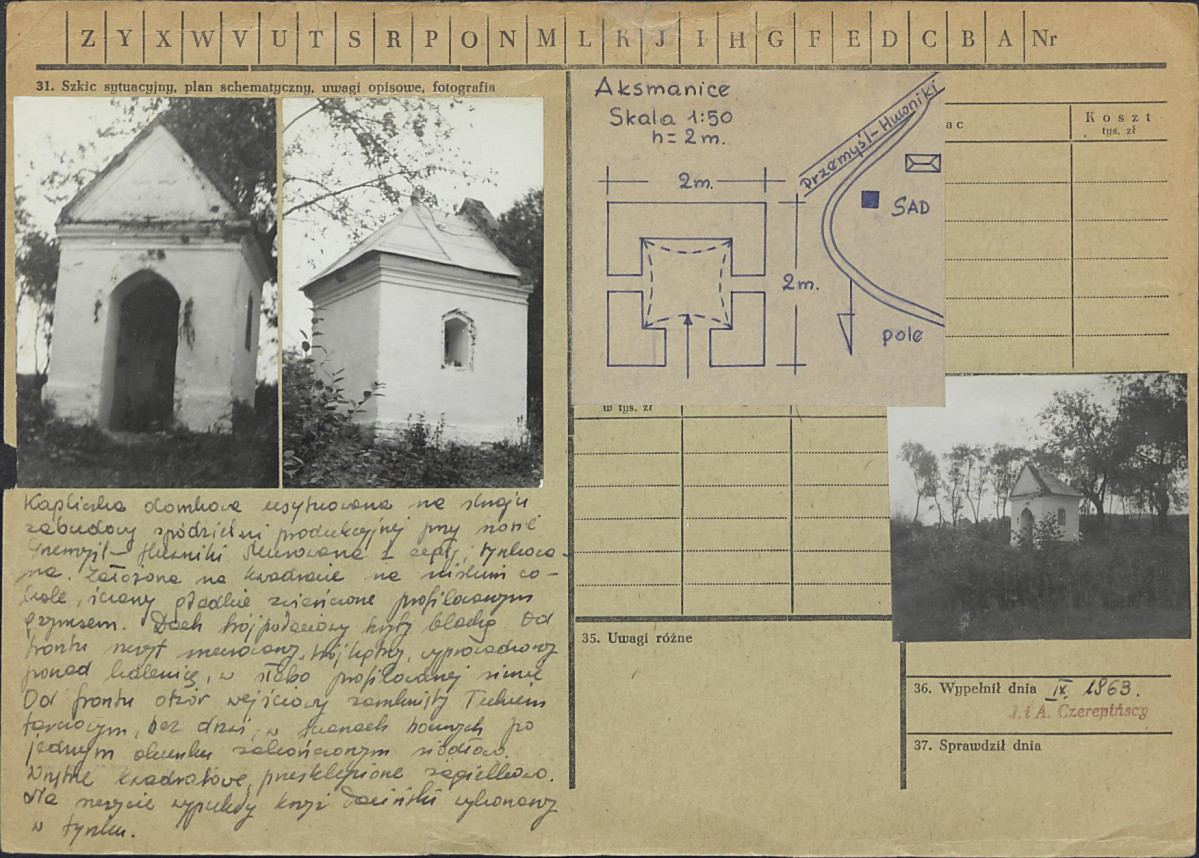 Z Y X W V U T S R P O N M L K J I H G F E D C B A Nr
31. Szkic sytuacyjny, plan schematyczny, uwagi opisowe, fotografia
Aksmanice
Skala 1:50
h= 2m.
2m.
2m.
Przemyśl-Huwniki
SAD
pole
ac
Koszt
tys. zł
w tys. zł
Kapliczka domkowa usytuowana na skraju
zabudowy spódzielni produkcyjnej przy szosie
Przemyśl-Huwniki. Murowana z cegły, tynkowa-
na. Założona na kwadracie na niskim co-
kole, ściany gładkie zwieńczone profilowanym
gzymsem. Dach trójpołaciowy kryty blachą. Od
frontu szczyt murowany, trójkątny, wyprowadzony
ponad kalenicę, w słabo profilowanej ramie.
Od frontu otwór wejściowy zamknięty łukiem
, bez drzwi, w ścianach bocznych po
jednym okienku zakończonym
Wnętrze kwadratowe, przesklepione żagielkowo.
Na szczycie wypukły krzyż łaciński wykonany
w tynku.
35. Uwagi różne
36. Wypełnił dnia IX 1963.
J. i A. Czerepińscy
37. Sprawdził dnia